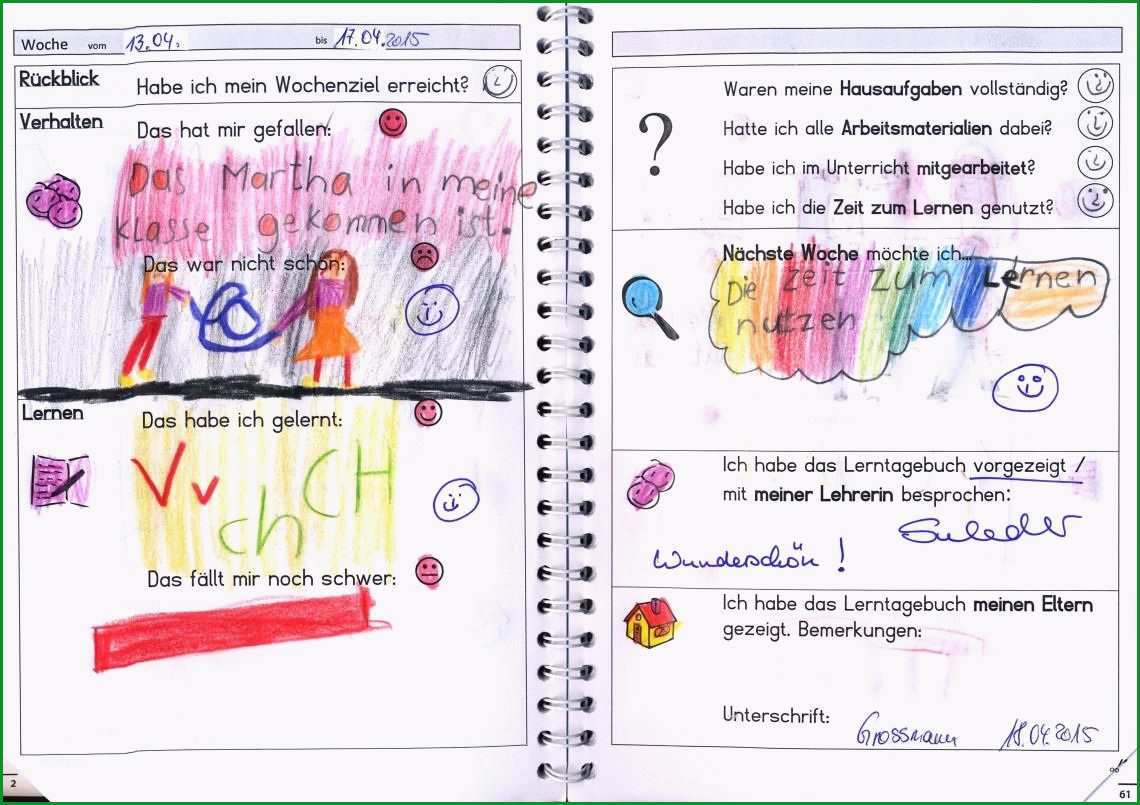 Woche vom 13.04. bis 17.04.2015
Rückblick Habe ich mein Wochenziel erreicht?
Verhalten Das hat mir gefallen:
Das Martha in meine
klasse gekommen ist.
Das war nicht schön:
Lernen Das habe ich gelernt:
V v
ch CH
Das fällt mir noch schwer:
2
Waren meine Hausaufgaben vollständig?
? Hatte ich alle Arbeitsmaterialien dabei?
Habe ich im Unterricht mitgearbeitet?
Habe ich die Zeit zum Lernen genutzt?
Nächste Woche möchte ich...
Die Zeit zum Lernen
nutzen
Ich habe das Lerntagebuch vorgezeigt /
mit meiner Lehrerin besprochen:
Wunderschön!
Ich habe das Lerntagebuch meinen Eltern
gezeigt. Bemerkungen:
Unterschrift: Grossmann 18.04.2015
61